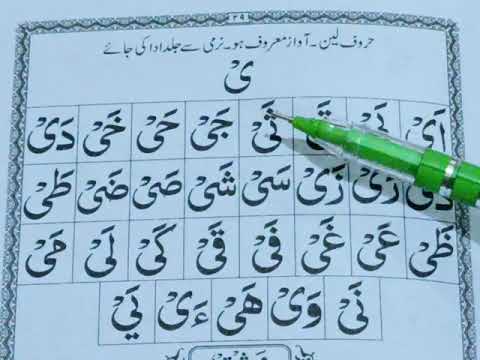 حروف لین۔ آواز معروف ہو۔ نرمی سے جلد ادا کی جائے
یْ
اَیْ بَیْ تَیْ ثَیْ جَیْ حَیْ خَیْ دَیْ
ذَیْ رَیْ زَیْ سَیْ شَیْ صَیْ ضَیْ طَیْ
ظَیْ عَیْ غَیْ فَیْ قَیْ کَیْ لَیْ مَیْ
نَیْ وَیْ هَیْ ءَیْ یَیْ